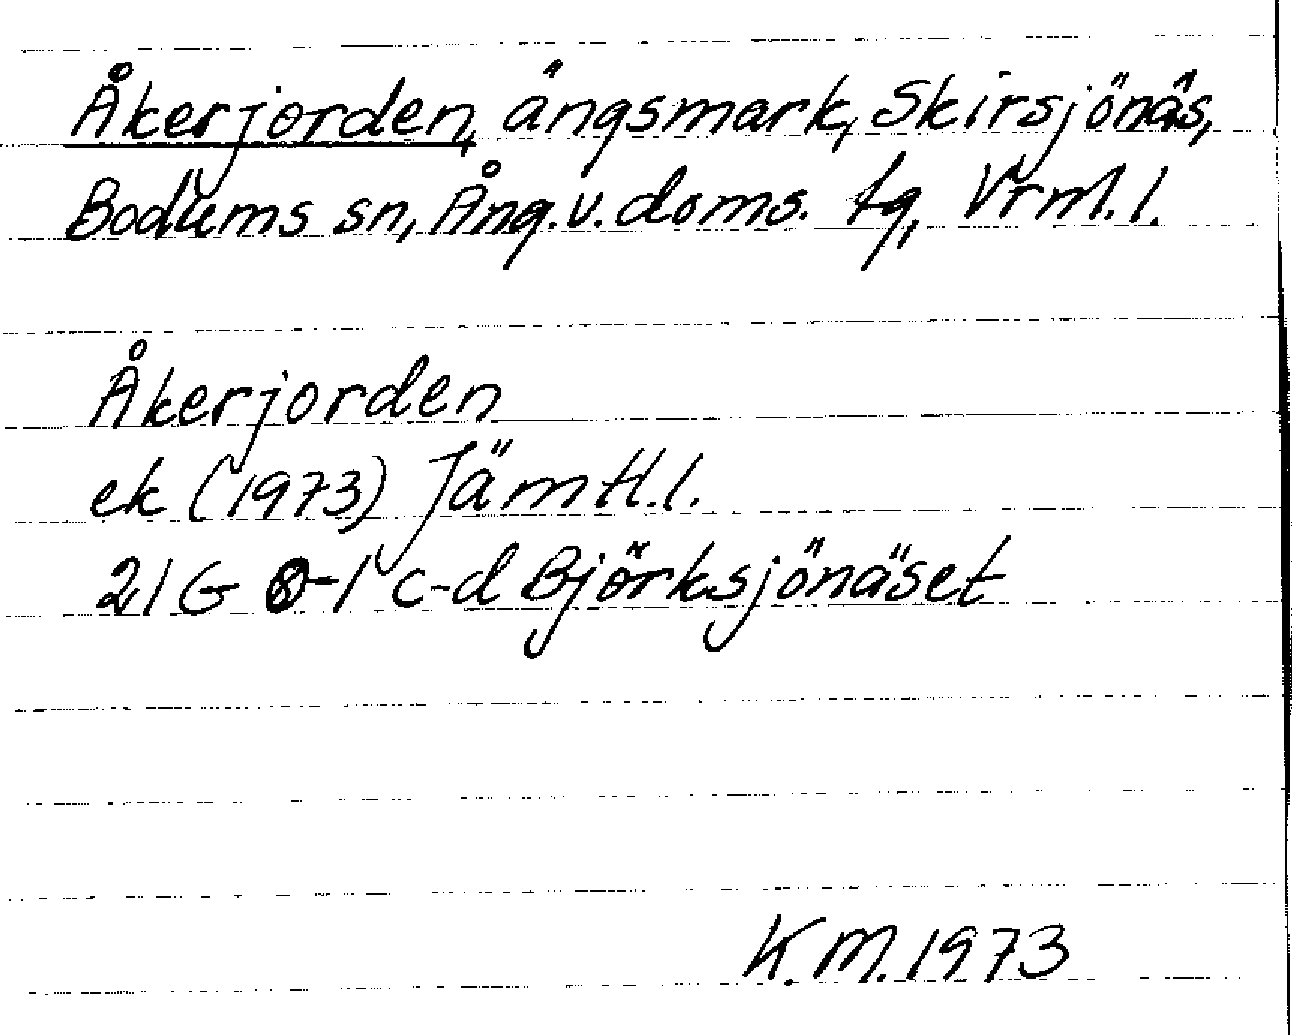 Åkerjorden, ängsmark, Skirsjönäs,
Bodums sn, Ång.v.doms. tg, Vrml.l.
Åkerjorden
ek (1973) Jämtl.l.
21G 0-1 c-d Björksjönäset
K.M.1973